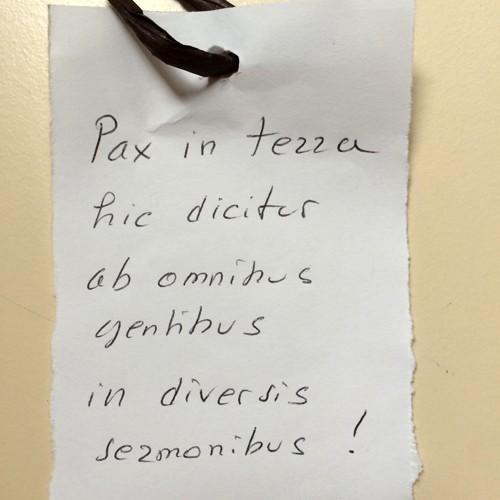 Pax in terra
hic dicitur
ab omnibus
gentibus
in diversis
sermonibus !